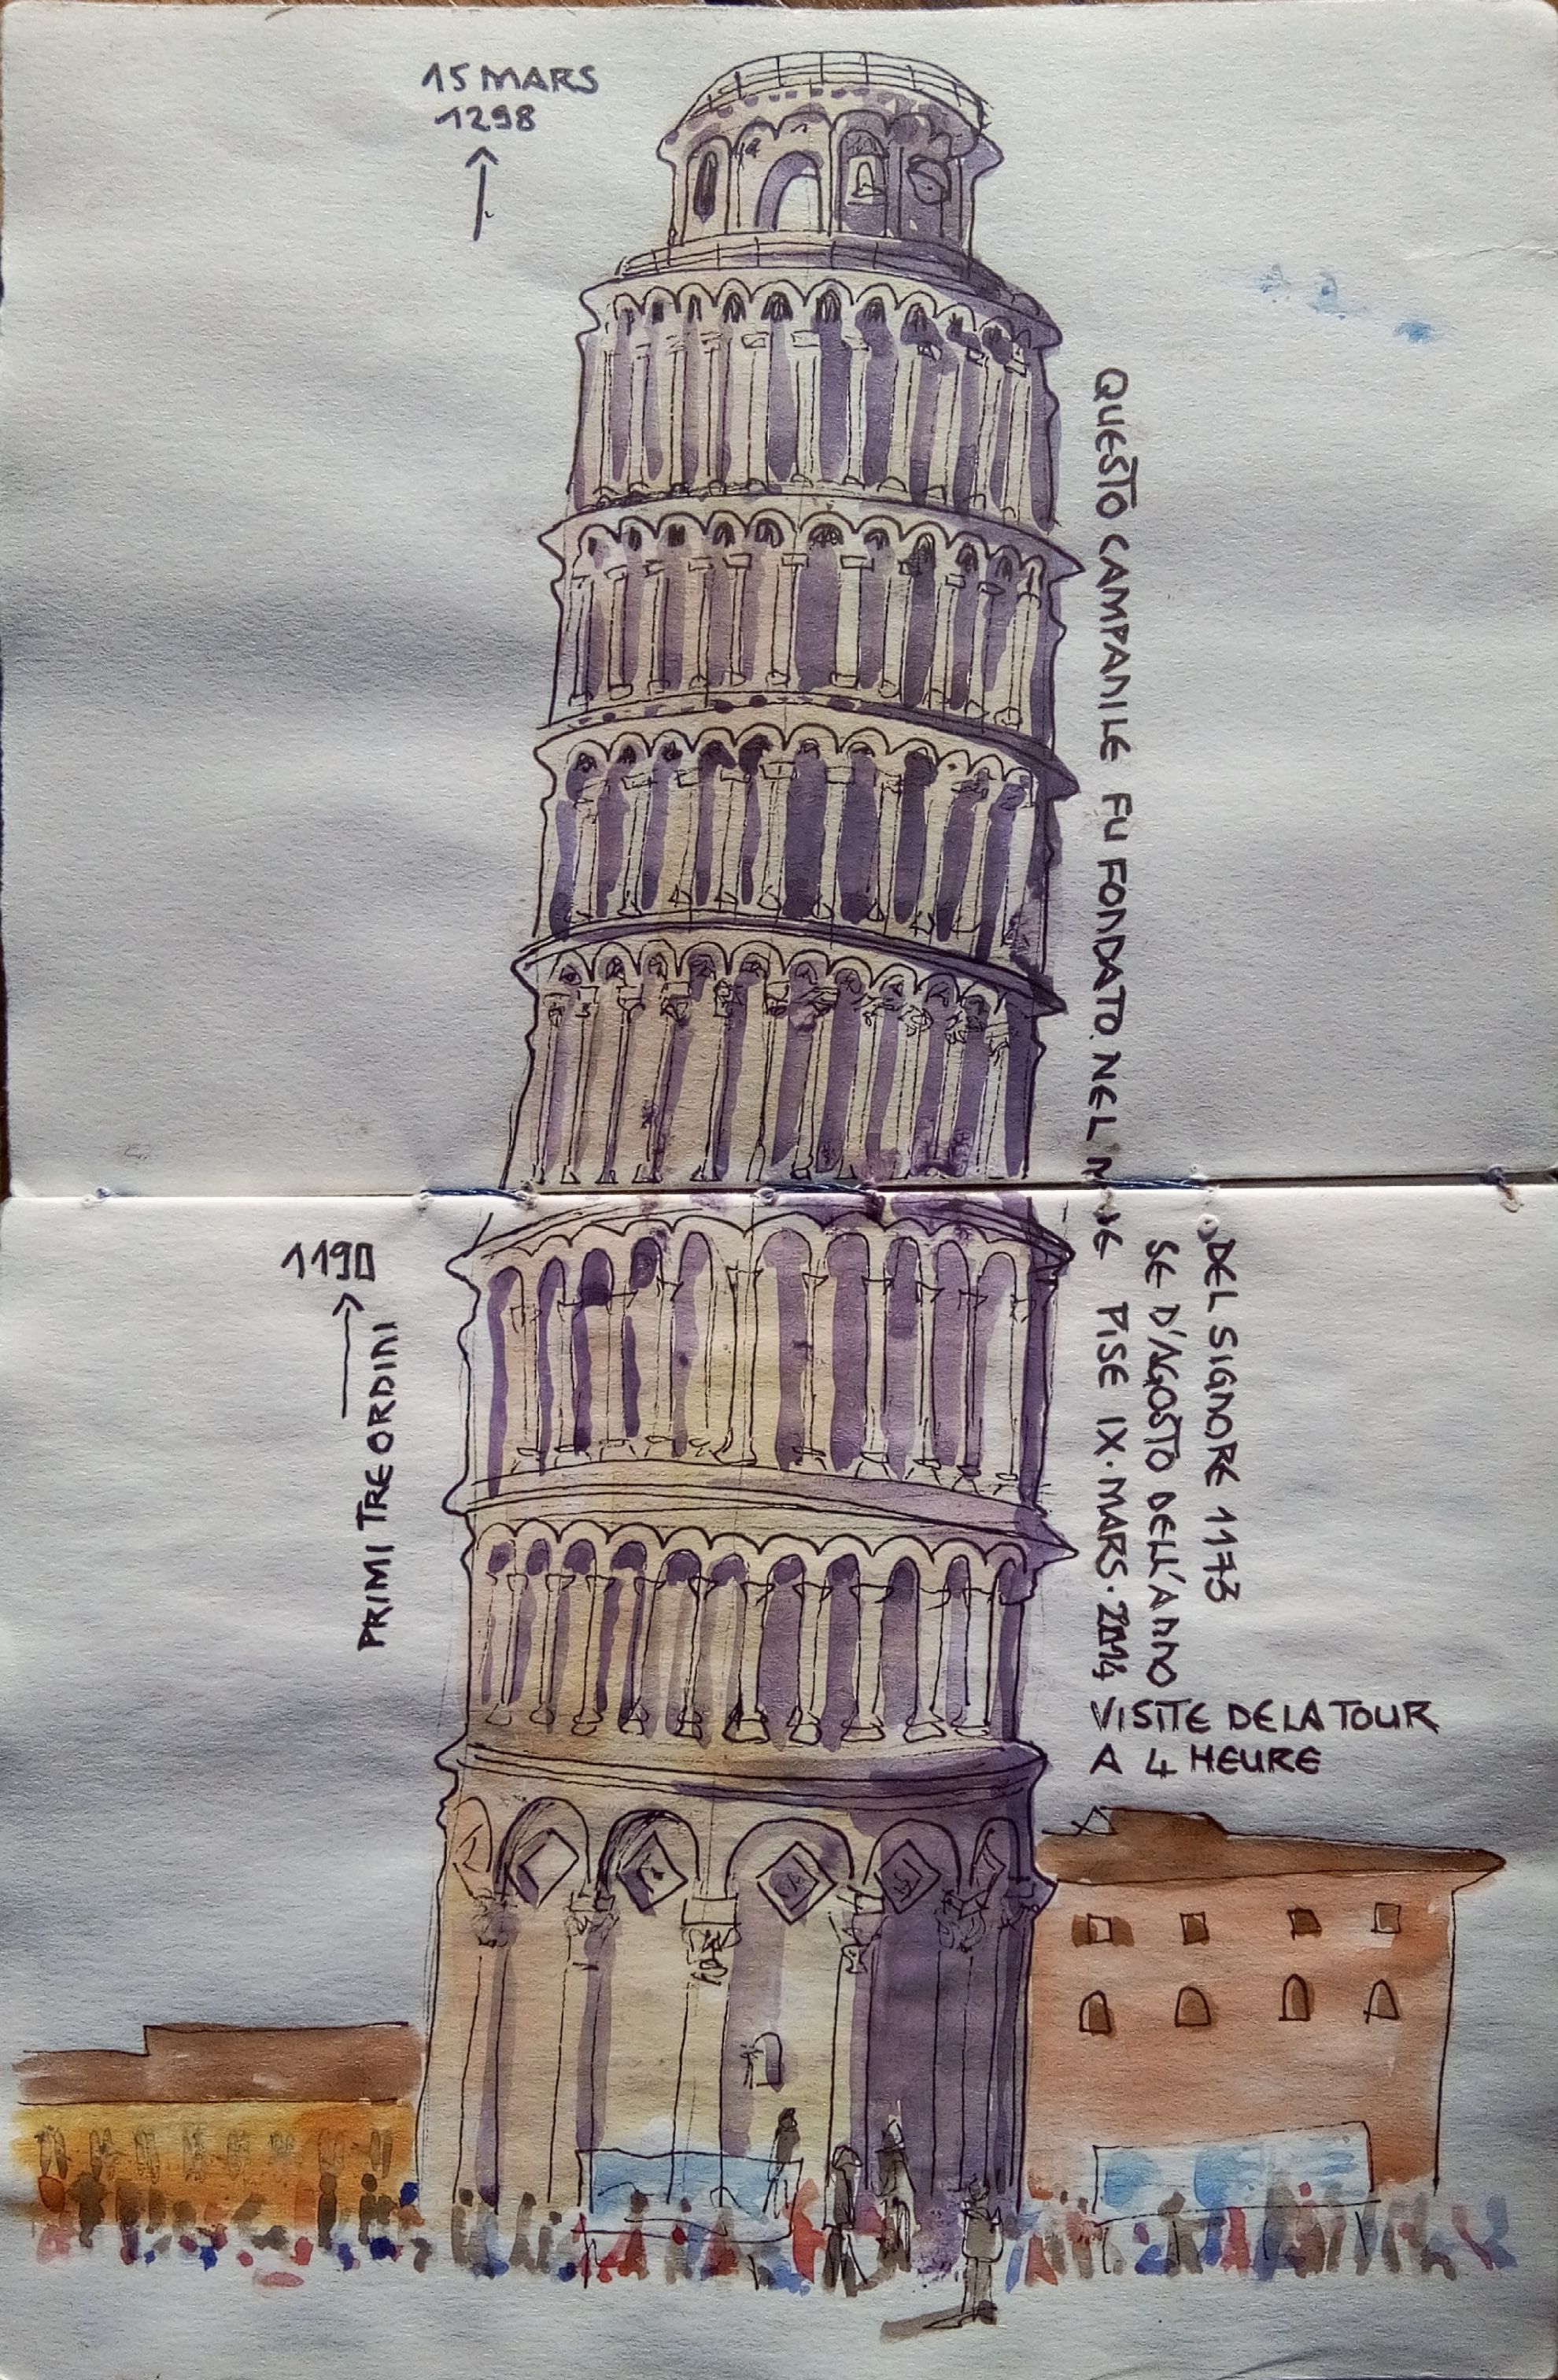 15 MARS
1298
QUESTO CAMPANILE FU FONDATO NEL ME
SE D'AGOSTO DELL'ANNO
DEL SIGNORE 1173
1190
PRIMI TRE ORDINI
PISE IX·MARS·2014
VISITE DE LA TOUR
A 4 HEURE